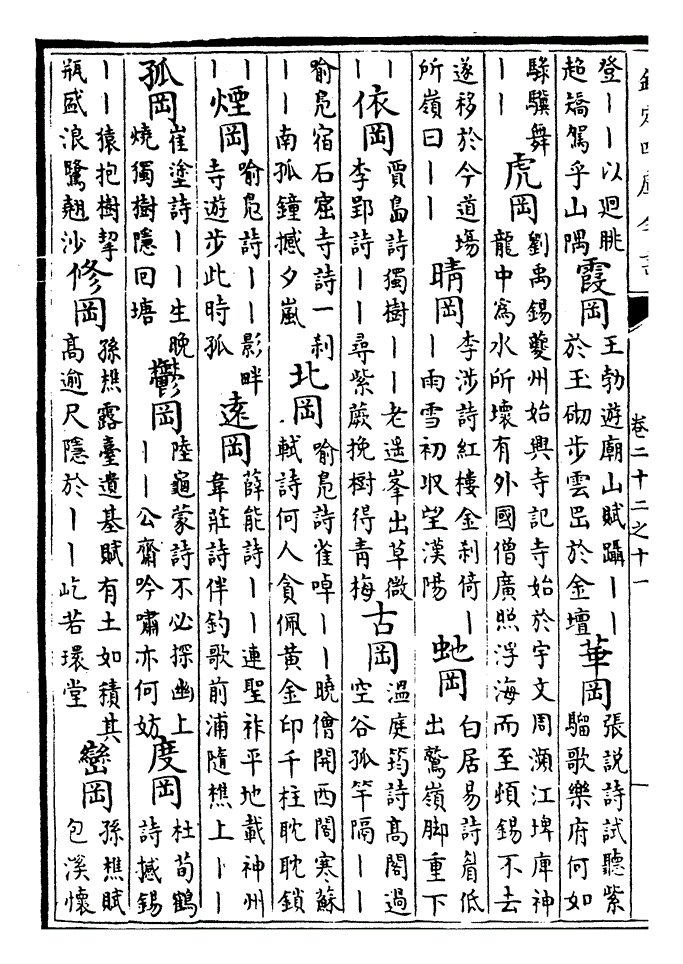 卷二十二之十一
登丨丨以迴眺
超矯駕乎山隅
霞岡
王勃遊廟山賦躡丨丨
於玉砌步雲岊於金壇
華岡
張說詩試聽紫
騮歌樂府何如
騄驥舞
丨丨
虎岡
劉禹錫夔州始興寺記寺始於宇文周瀕江埤庳神
龍中為水所壞有外國僧廣照浮海而至頓錫不去
遂移於今道塲
所嶺曰丨丨
晴岡
李涉詩紅樓金刹倚丨
丨雨雪初収望漢陽
虵岡
白居易詩眉低
出鷲嶺脚重下
丨丨
依岡
賈島詩獨樹丨丨老遥峯出草微
李郢詩丨丨尋紫蕨挽樹得青梅
古岡
溫庭筠詩髙閣過
空谷孤竿隔丨丨
喻鳧宿石窟寺詩一刹
丨丨南孤鐘撼夕嵐
北岡
喻鳧詩雀啅丨丨曉僧開西閣寒蘇
軾詩何人貪佩黄金印千柱耽耽鎖
丨丨
煙岡
喻鳧詩丨丨影畔
寺遊步此時孤
遠岡
薛能詩丨丨連聖祚平地載神州
韋莊詩伴釣歌前浦隨樵上丨丨
孤岡
崔塗詩丨丨生晚
燒獨樹隱回塘
鬱岡
陸龜蒙詩不必探幽上
丨丨公齋吟嘯亦何妨
度岡
杜荀鶴
詩撼錫
丨丨猿抱樹挈
瓶盛浪鷺翹沙
修岡
孫樵露臺遺基賦有土如積其
髙逾尺隱於丨丨屹若環堂
巒岡
孫樵賦
包溪懷